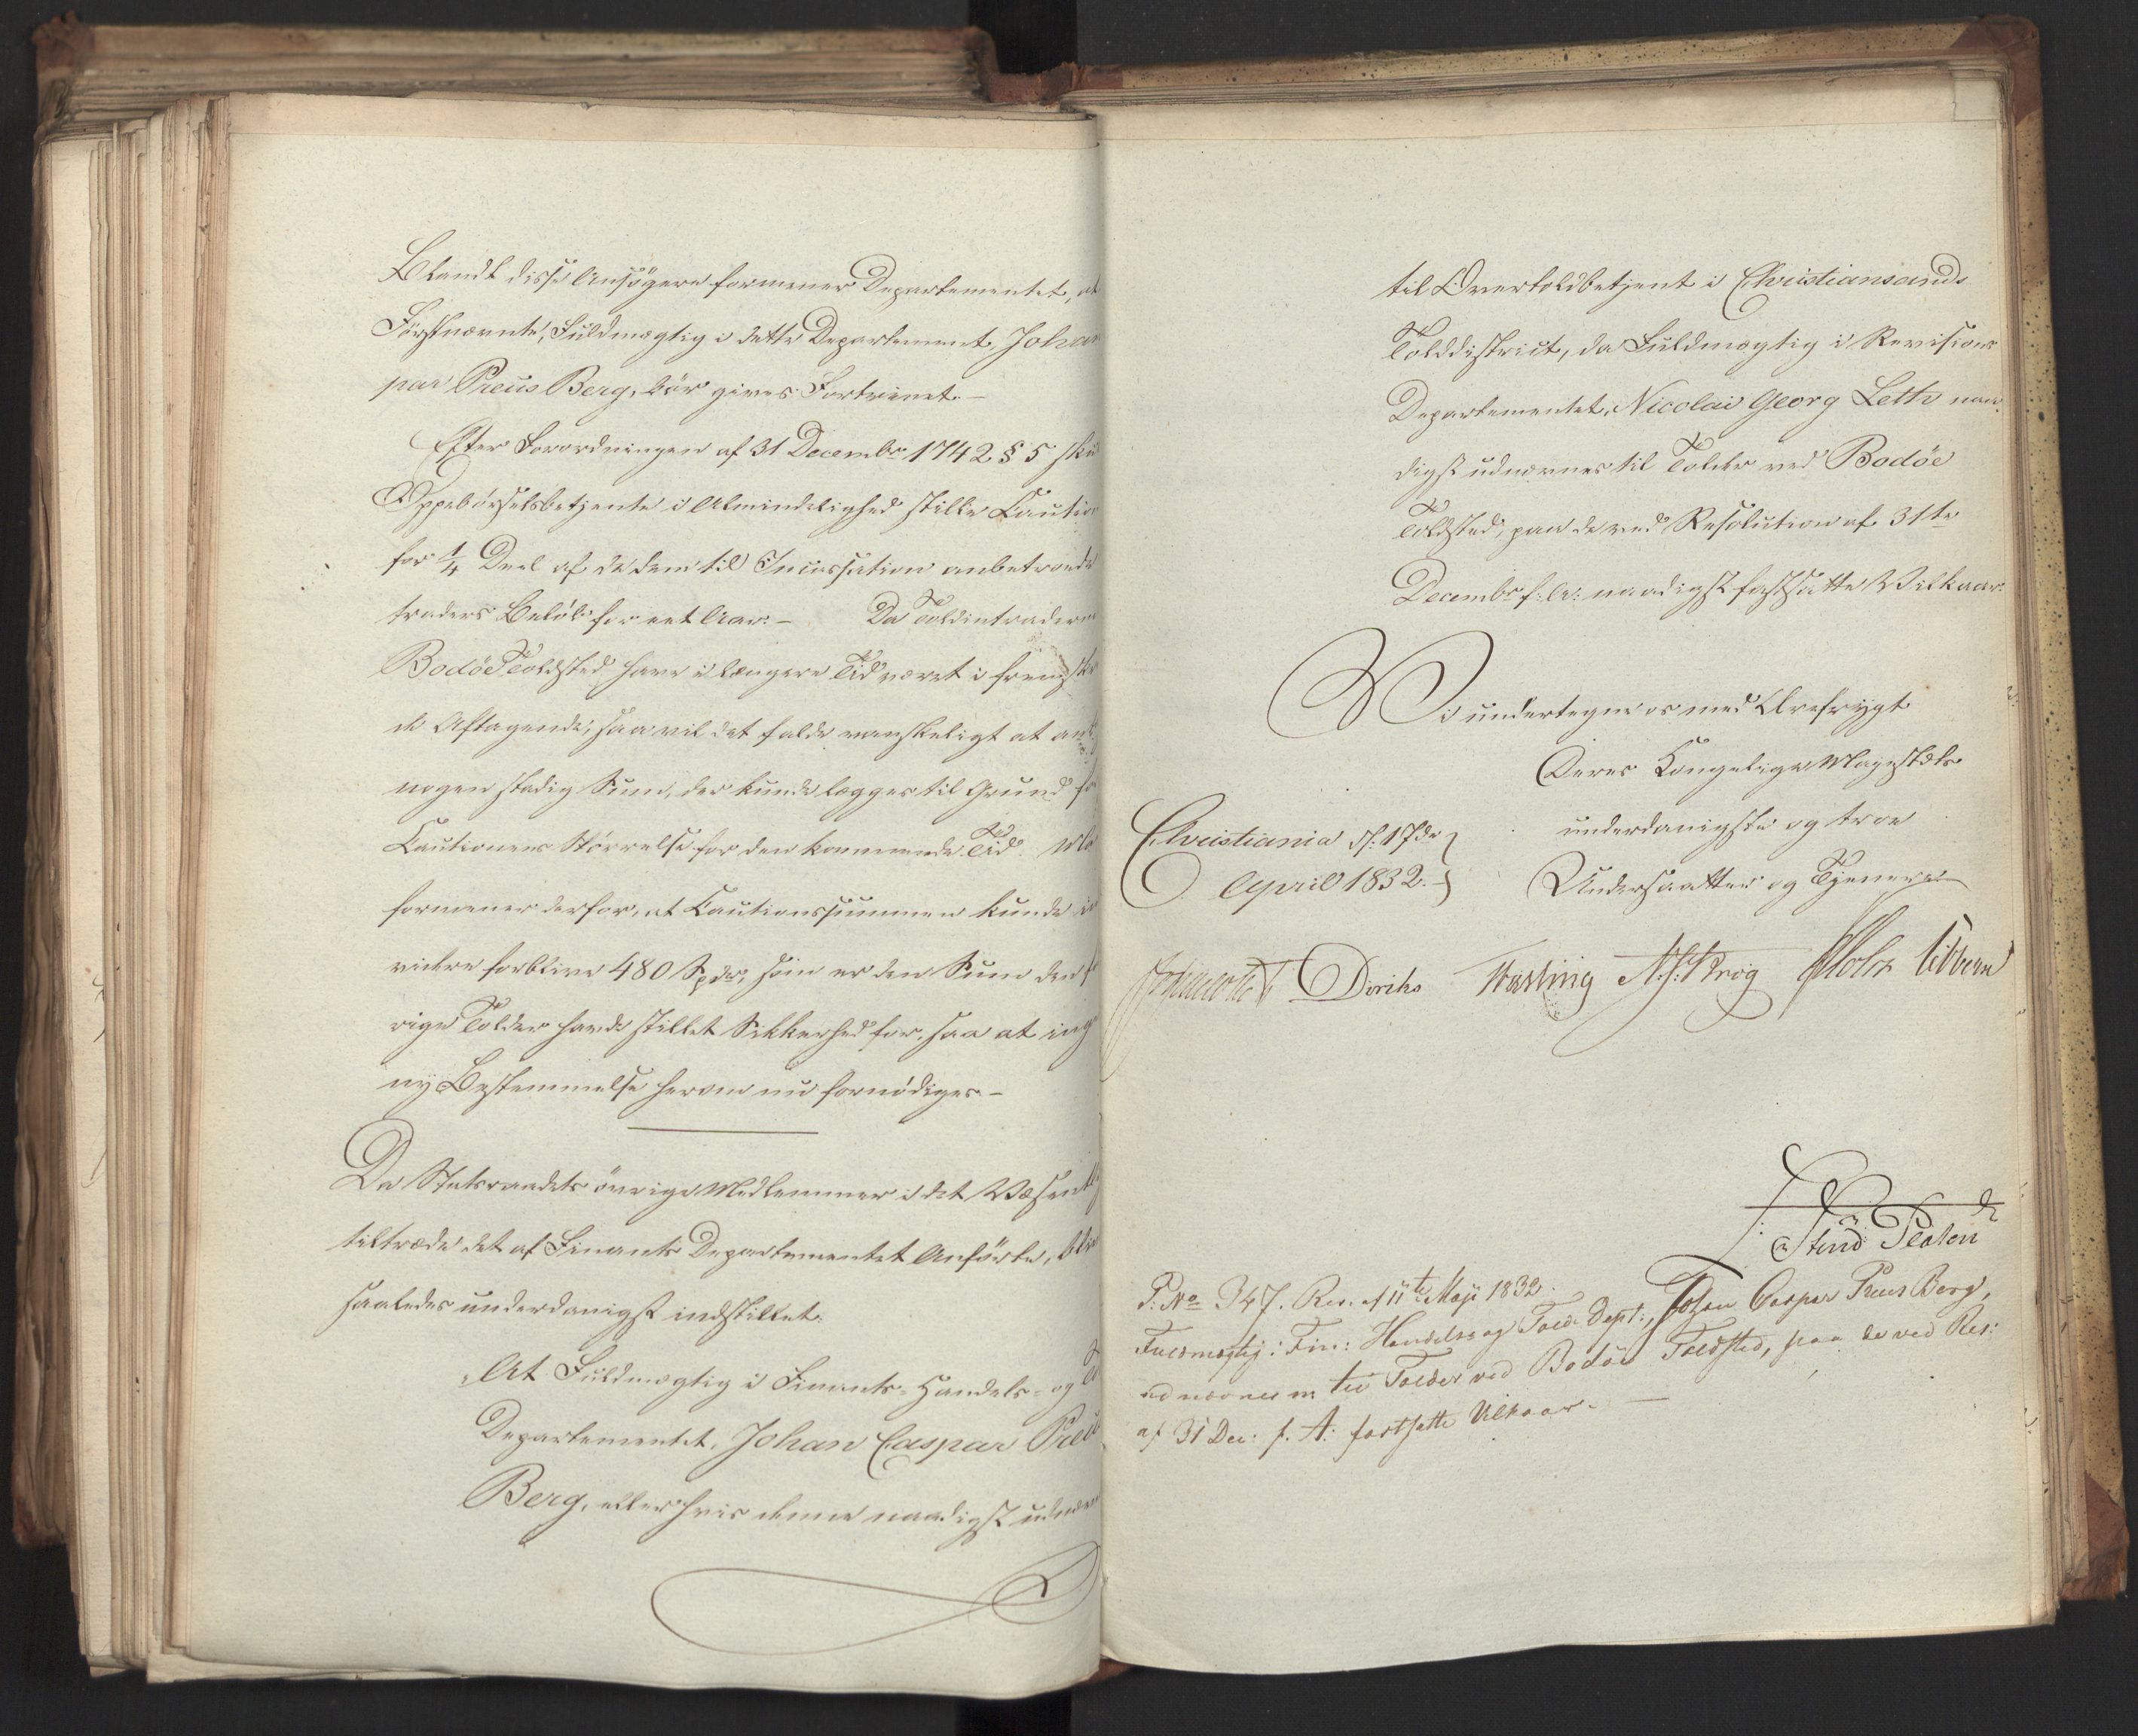 Blandt disse Ansøgere formener Departementet, at
Førstnævnte, Fuldmægtig i dette Departement, Johan
par Preus Berg, bør gives Fortrinet. -
Efter Forordningen af 31 Decembr 1742 § 5 sku
Oppebørselsbetjente i Almindelighed stille Caution
for 1/4 Deel af de dem til Incassation anbetroede
traders Beløb for eet Aar. - Da Toldintraderne
Bodøe Toldsted have i længere Tid været i fremskri
de Aftagende, saa vil det falde vanskeligt at ant
nogen stadig Sum, der kunde lægges til Grund fo
Cautionens Størrelse for den kommende Tid. Ma
formener derfor, at Cautionssummen kunde in
videre forblive 480 Spdr, som er den Sum den f
rige Tolder havde stillet Sikkerhed for, saa at ing
ny Bestemmelse herom nu fornødiges. -
Da Statsraadets øvrige Medlemmer i det Væsentl
tiltræde det af Finants Departementet Anførte, bliv
saaledes underdanigst indstillet:
At Fuldmægtig i Finants- Handels- og
Departementet, Johan Caspar Preus
Berg, eller hvis denne naadigst udnæv
til Overtoldbetjent i Christiansands
Tolddistrict, da Fuldmægtig i Revisions
Departementet, Nicolai Georg Leth naa
digst udnævnes til Tolder ved Bodøe
Toldsted, paa de ved Resolution af 31te
Decembr f: A: naadigst fastsatte Vilkaar.
Vi undertegne os med Ærefrygt
Deres Kongelige Majestæts
underdanigste og troe
Undersaatter og Tjenere
Christiania d. 17de
April 1832. -
Diriks Fasting Krog Holst Sibbern
Platen
P: No 347. Res. af 11te Maji 1832.
Fuldmægtig i Fin: Handels og Told-Dept:, Johan Caspar Preus Berg,
udnævnes til Tolder ved Bodøe Toldsted, paa de ved Res:
af 31 Dec: f. A: fastsatte Vilkaar. -